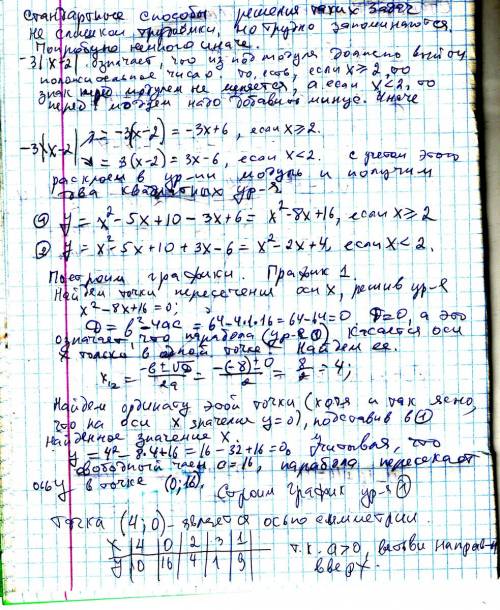 Стандартные способы решения таких задач
не слишком трудоёмки, но трудно запоминаются.
Попробую немного иначе.
-3|x-2| означает, что из под модуля должно выйти
положительное число то, есть, если x≥2, то
знак перед модулем не меняется, а если x<2, то
перед модулем надо добавить минус. Иначе
-3|x-2| = -3(x-2) = -3x+6, если x≥2.
= 3(x-2) = 3x-6, если x<2. с учетом этого
раскроем в ур-нии модуль и получим
два квадратных ур-я
① y = x²-5x+10-3x+6 = x²-8x+16, если x≥2
② y = x²-5x+10+3x-6 = x²-2x+4, если x<2.
Построим графики. График 1.
Найдем точки пересечения оси x, решив ур-е
x²-8x+16=0;
D = b²-4ac = 64-4·1·16 = 64-64=0 D=0, а это
означает, что парабола (ур-е ①) касается оси
X только в одной точке. Найдем ее.
x₁₂ = (-b±√D)/2a = (-(-8)±0)/2 = 8/2 = 4;
Найдем ординату этой точки (хотя и так ясно,
что на оси X значение y=0), подставив в ①
найденное значение X.
y = 4²-8·4+16 = 16-32+16=0. Учитывая, что
свободный член a=16, парабола пересекает
ось y в точке (0;16).
Строим график ур-я ①
Точка (4;0) - является осью симметрии.
X | 4 | 0 | 2 | 3 | 1
y | 0 | 16 | 4 | 1 | 9
т.к. a>0, ветви направ-ы
вверх.